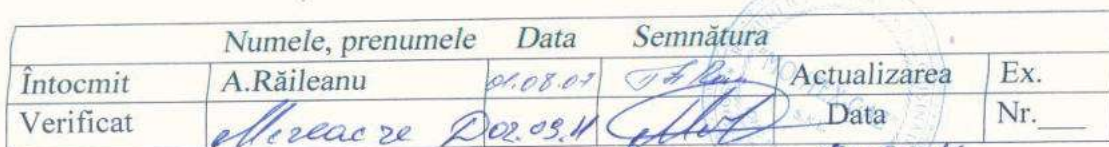 Numele, prenumele Data Semnătura
Întocmit A.Răileanu 01.08.07 Actualizarea Ex.
Verificat Mereacre D 02.09.11 Data Nr.___